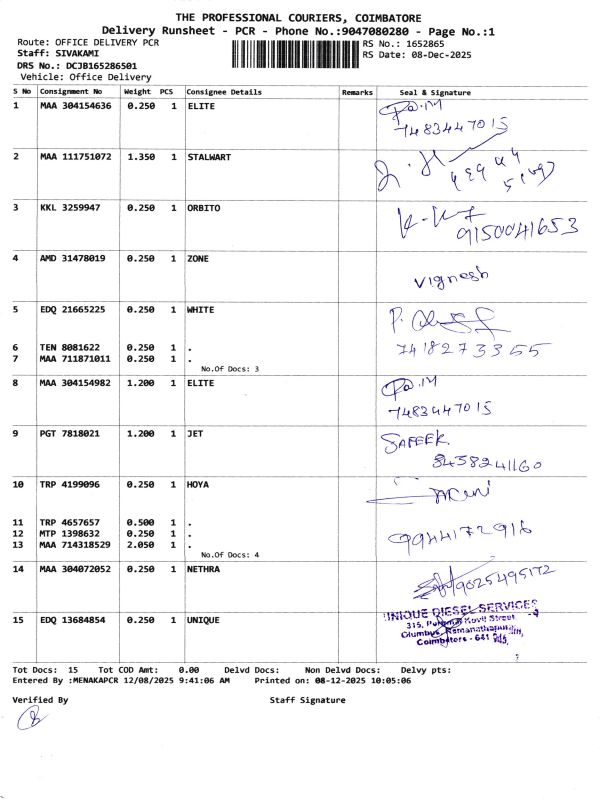 THE PROFESSIONAL COURIERS, COIMBATORE
Delivery Runsheet - PCR - Phone No.:9047080280 - Page No.:1
Route: OFFICE DELIVERY PCR
RS No.: 1652865
Staff: SIVAKAMI
RS Date: 08-Dec-2025
DRS No.: DCJB165286501
Vehicle: Office Delivery
S No Consignment No Weight PCS Consignee Details Remarks Seal & Signature
1 MAA 304154636 0.250 1 ELITE
7483447015
2 MAA 111751072 1.350 1 STALWART
3 KKL 3259947 0.250 1 ORBITO
9150041653
4 AMD 31478019 0.250 1 ZONE
Vignesh
5 EDQ 21665225 0.250 1 WHITE
6 TEN 8081622 0.250 1 .
7418273355
7 MAA 711871011 0.250 1 .
No.Of Docs: 3
8 MAA 304154982 1.200 1 ELITE
7483447015
9 PGT 7818021 1.200 1 JET
SAFEEK
8438241160
10 TRP 4199096 0.250 1 HOYA
11 TRP 4657657 0.500 1 .
12 MTP 1398632 0.250 1 .
9944172916
13 MAA 714318529 2.050 1 .
No.Of Docs: 4
14 MAA 304072052 0.250 1 NETHRA
9025495172
15 EDQ 13684854 0.250 1 UNIQUE
UNIQUE DIESEL SERVICES
315, Kovil Street
Ramanathapuram,
Coimbatore - 641
Tot Docs: 15 Tot COD Amt: 0.00 Delvd Docs: Non Delvd Docs: Delvy pts:
Entered By :MENAKAPCR 12/08/2025 9:41:06 AM Printed on: 08-12-2025 10:05:06
Verified By Staff Signature